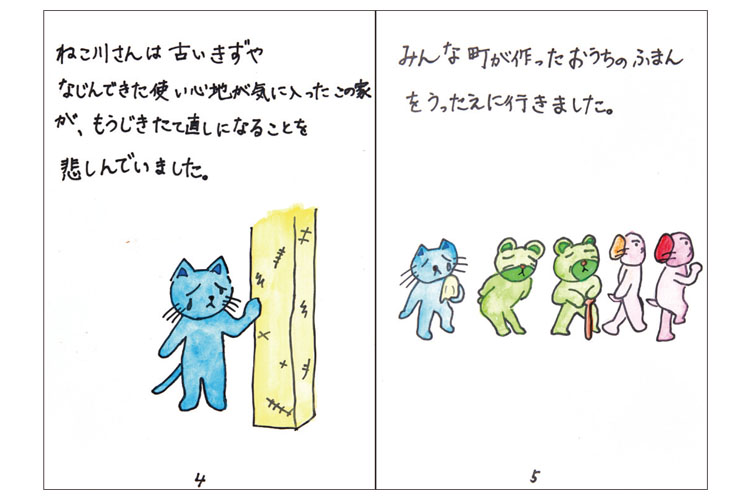 ねこ川さんは古いきずや
なじんできた使い心地が気に入ったこの家
が、もうじきたて直しになることを
悲しんでいました。
4
みんな町が作ったおうちのふまん
をうったえに行きました。
5